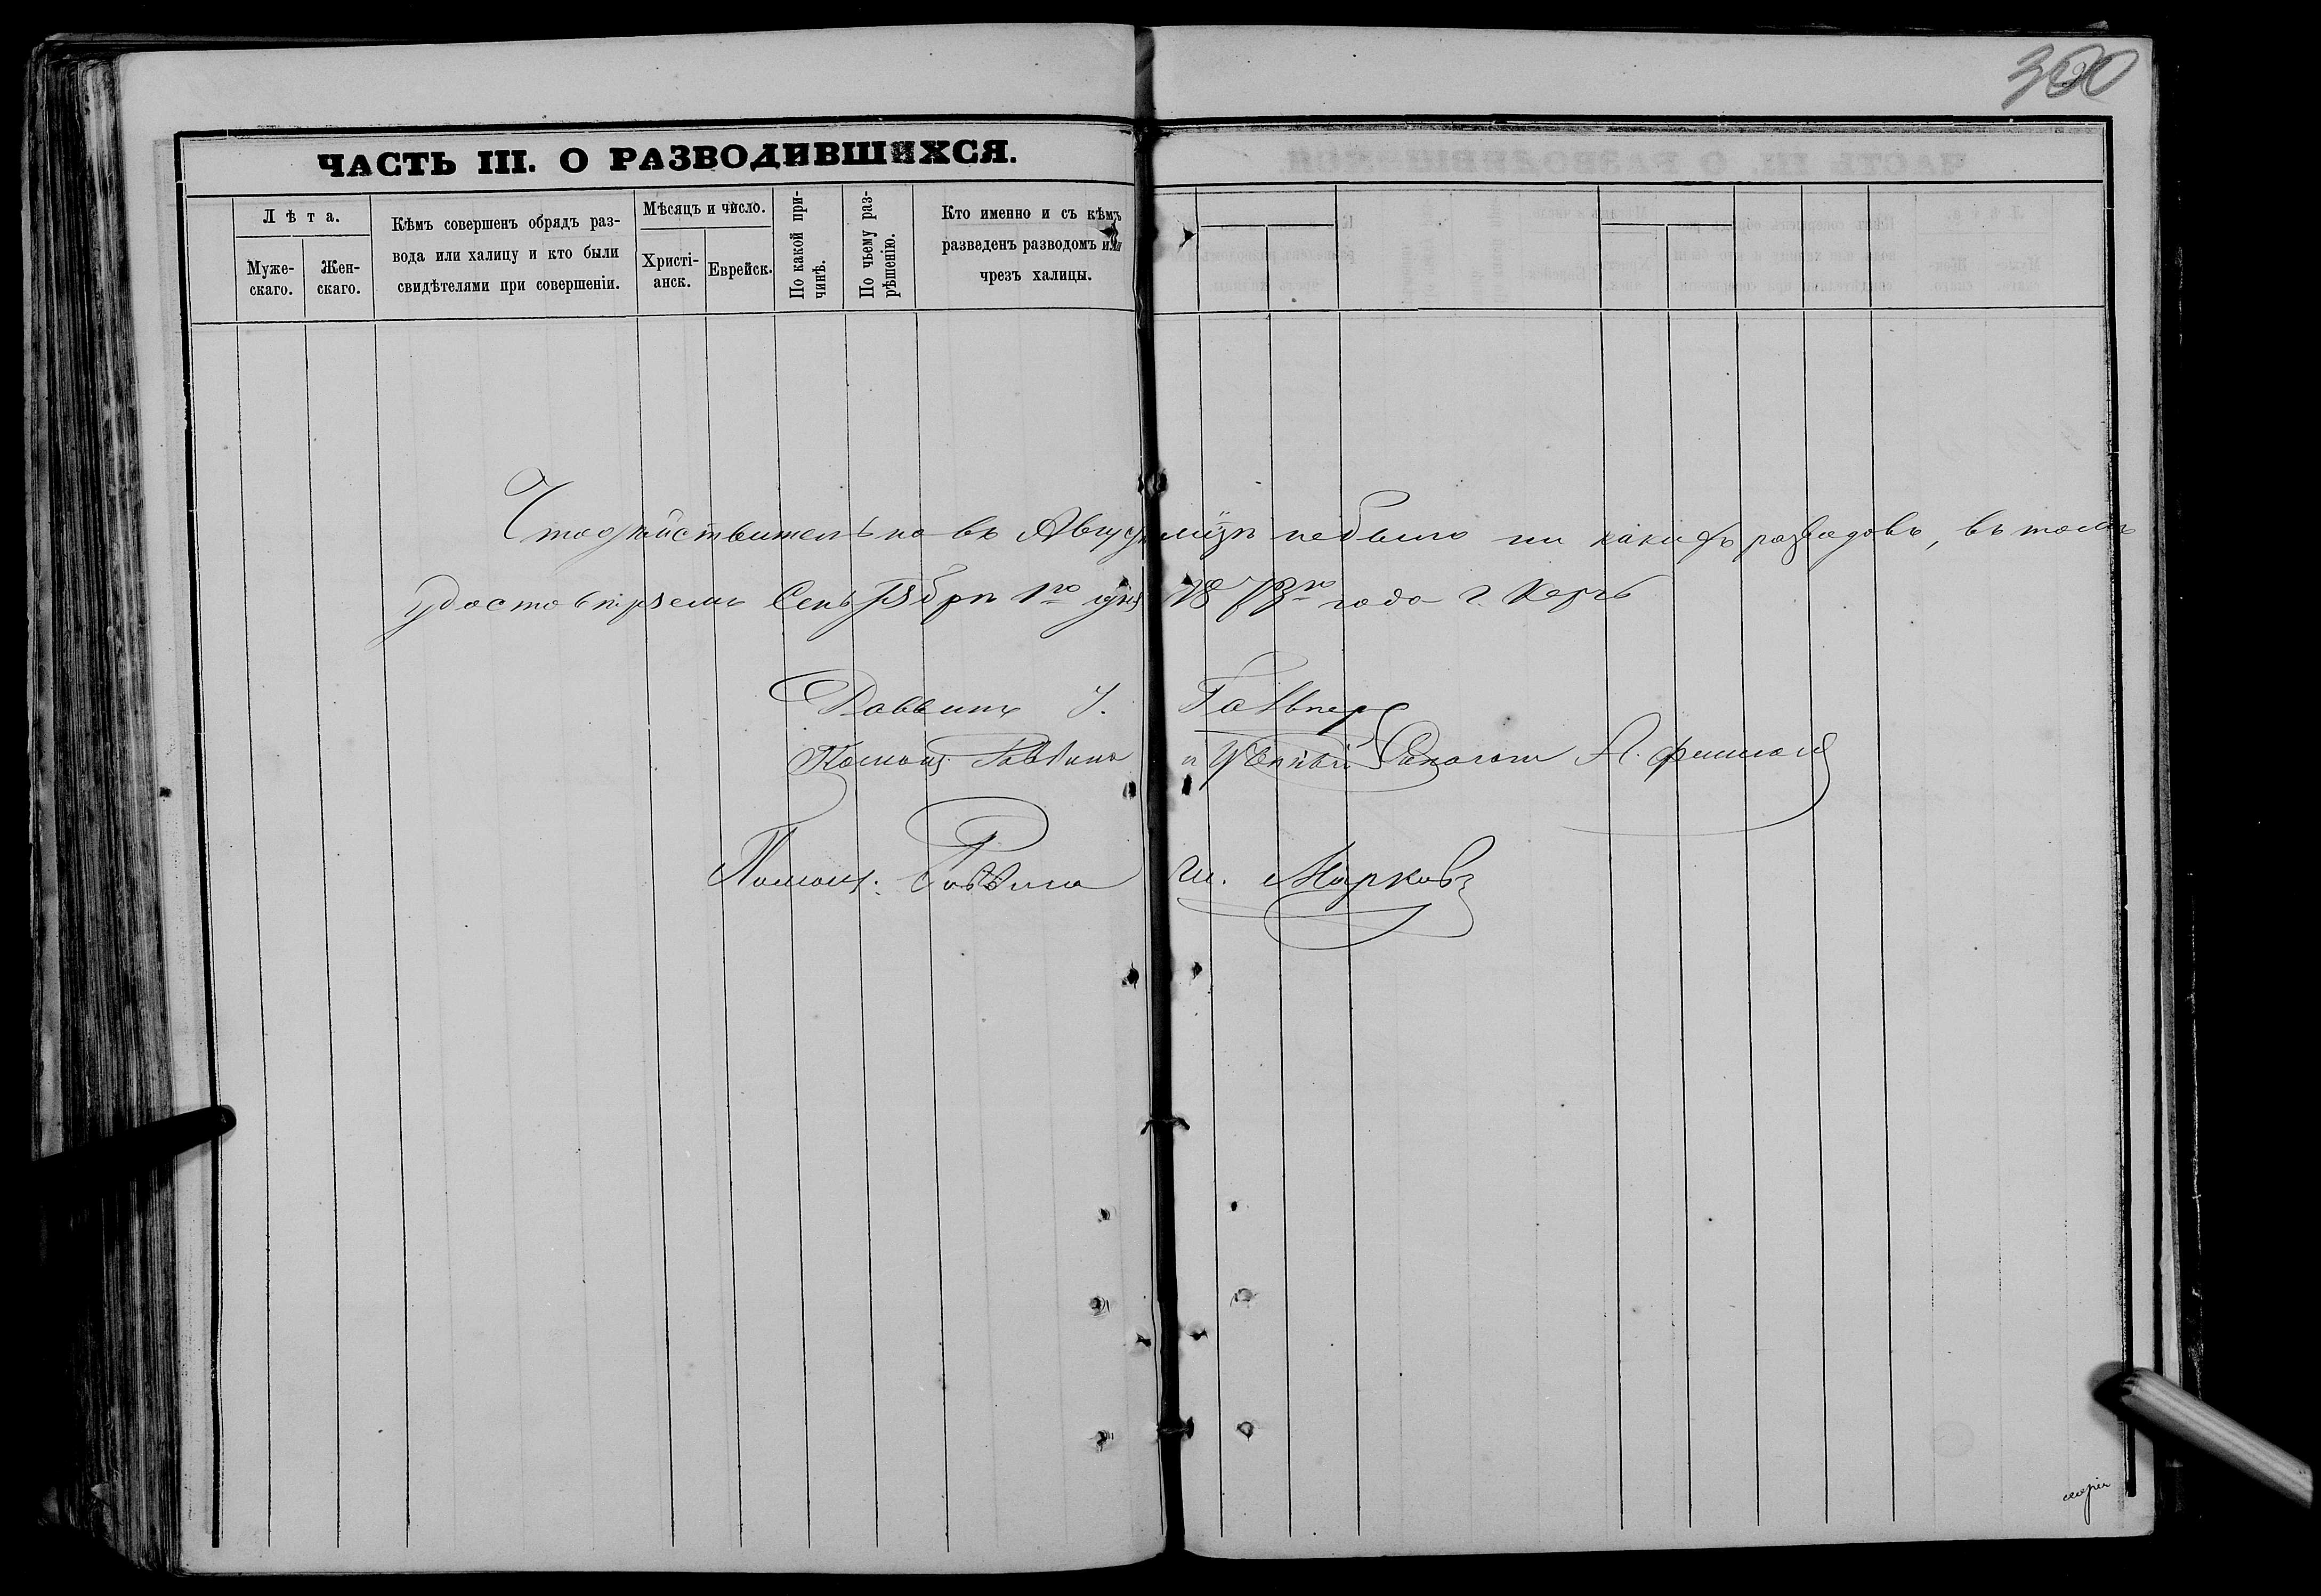 300
ЧАСТЬ III. О РАЗВОДИВШИХСЯ.
Лѣта.
Муже-
скаго.
Жен-
скаго.
Кѣмъ совершенъ обрядъ раз-
вода или халицу и кто были
свидѣтелями при совершеніи.
Мѣсяцъ и число.
Христі-
анск.
Еврейск.
По какой при-
чинѣ.
По чьему раз-
рѣшенію.
Кто именно и съ кѣмъ
разведенъ разводомъ или
чрезъ халицы.
Что дѣйствительно въ Августѣ м-цѣ небыло ни какихъ разводовъ, въ томъ
удостовѣряемъ Сентября 1го дня 1873го года г. Керчь
Раввинъ
Помощ. Раввина и Ученый А.
Помощ. Раввина Ш. Марковъ